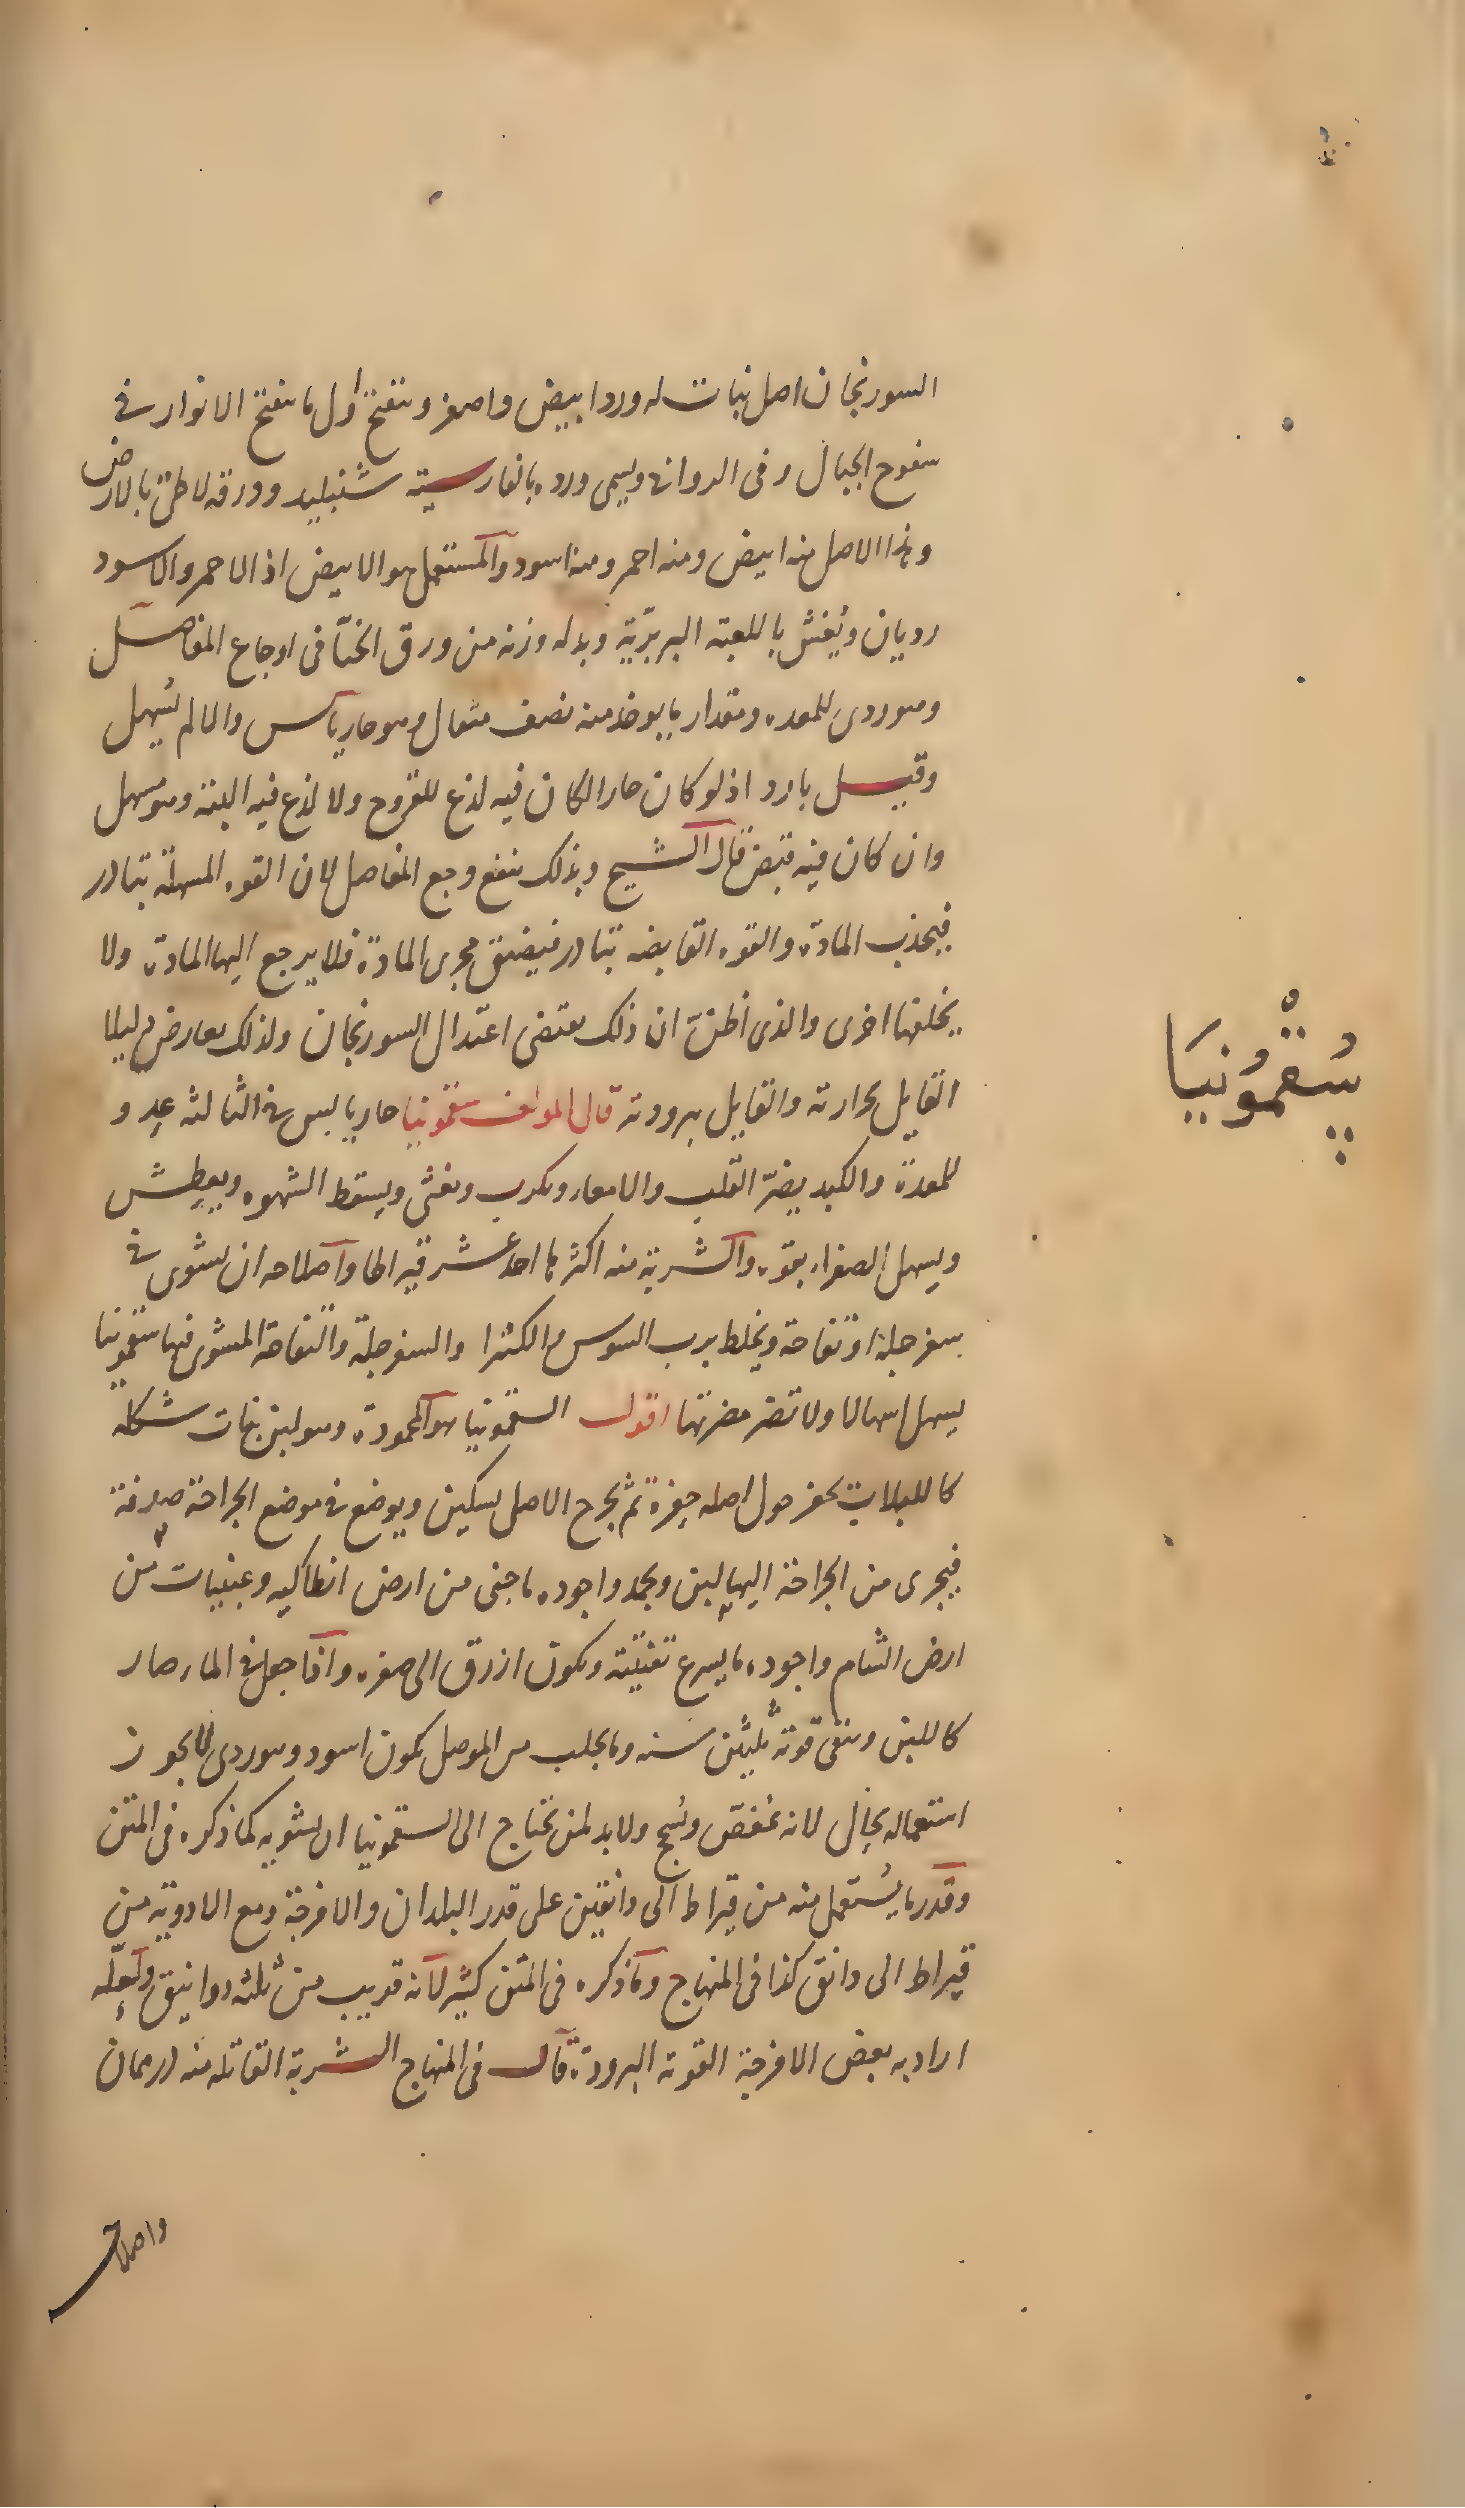 السورنجان اصل نبات له ورد ابيض واصفر وينفتح اول ما ينفتح الانوار في
سفوح الجبال وفى الروابى ويسمى ورده بالفارسية شنبليد وورقه لاطئ بالارض
وهذا الاصل منه ابيض ومنه احمر ومنه اسود والمستعمل هو الابيض اذ الاحمر والاسود
رديان ويُغش باللعبة البربرية وبدله وزنه من ورق الحنّا فى اوجاع المفاصل
وهو ردى للمعده ومقدار ما يوخذ منه نصف مثقال وهو حار يابس والا لم يُسهل
وقيل بارد اذ لو كان حارا لكان فيه لذع للقروح ولا لذع فيه البتة وهو مسهل
وان كان فيه قبض قال الشيخ وبذلك ينفع وجع المفاصل لان القوه المسهلة تبادر
فيجذب المادة والقوه القابضه تبادر فيضيق مجرى المادة فلا يرجع اليها المادة ولا
يخلفها اخرى والذى أظنّ ان ذلك يقتضى اعتدال السورنجان ولذلك يعارض دليلا
القايل بحرارته والقايل ببرودته قال المولف سقمونيا حار يابس فى الثالثه عدو
للمعدة والكبد يضرّ القلب والامعاء ويكرب ويغثى ويسقط الشهوه ويعطش
ويسهل الصفراء بقوه والشربة منه اكثرها احد عشر قيراطا واصلاحه ان يشوى فى
سفرجلة او تفاحة ويخلط برب السوس والكثيرا والسفرجلة والتفاحة المشوى فيها سقمونيا
يسهل اسهالا ولا تضر مضرتها اقول السقمونيا هو المحمودة وهو لبن نبات شكله
كاللبلاب يحفر حول اصله حفرة ثم يجرح الاصل بسكين ويوضع فى موضع الجراحة صدفة
فيجرى من الجراحة اليها لبن ويجمد واجوده ما جنى من ارض انطاكيه وعينيات من
ارض الشام واجوده ما يسرع تفتيته ويكون ازرق الى صفره واذا جعل فى الماء صار
كاللبن ويبقى قوته ثلثين سنه وما يجلب من الموصل يكون اسود وهو ردى لا يجوز
استعماله بحال لانه يمغص ويُسحج ولا بد لمن يحتاج الى السقمونيا ان يشويه كما ذكره فى المتن
وقدر ما يُستعمل منه من قيراط الى دانقين على قدر البلدان والامزجة ومع الادوية من
قيراط الى دانق كذا فى المنهاج وما ذكره فى المتن كثير لانه قريب من ثلثه دوانيق ولعلّه
اراد به بعض الامزجة القوية البرودة قال فى المنهاج الشربة القاتله منه درهمان
سُقْمُونيَا
واصلا